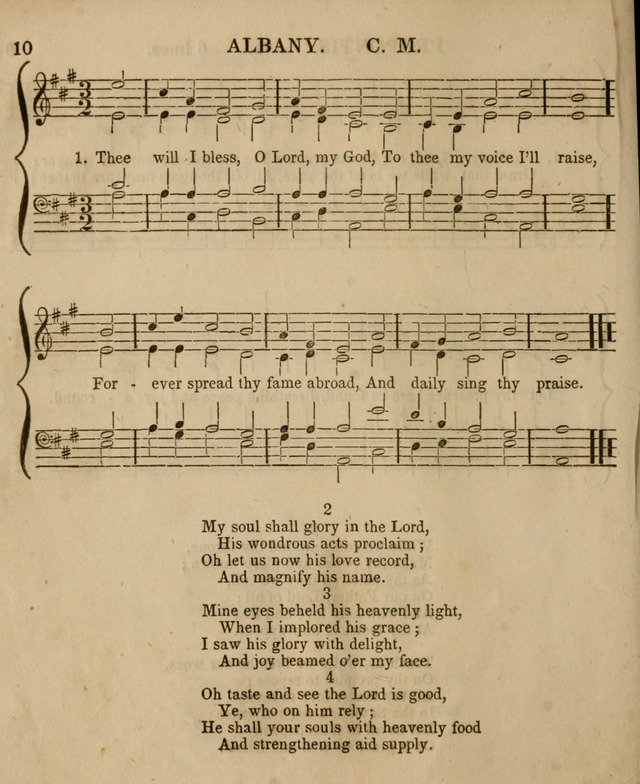 10 ALBANY. C. M.
1. Thee will I bless, O Lord, my God, To thee my voice I'll raise,
For - ever spread thy fame abroad, And daily sing thy praise.
2
My soul shall glory in the Lord,
His wondrous acts proclaim ;
Oh let us now his love record,
And magnify his name.
3
Mine eyes beheld his heavenly light,
When I implored his grace ;
I saw his glory with delight,
And joy beamed o'er my face.
4
Oh taste and see the Lord is good,
Ye, who on him rely ;
He shall your souls with heavenly food
And strengthening aid supply.